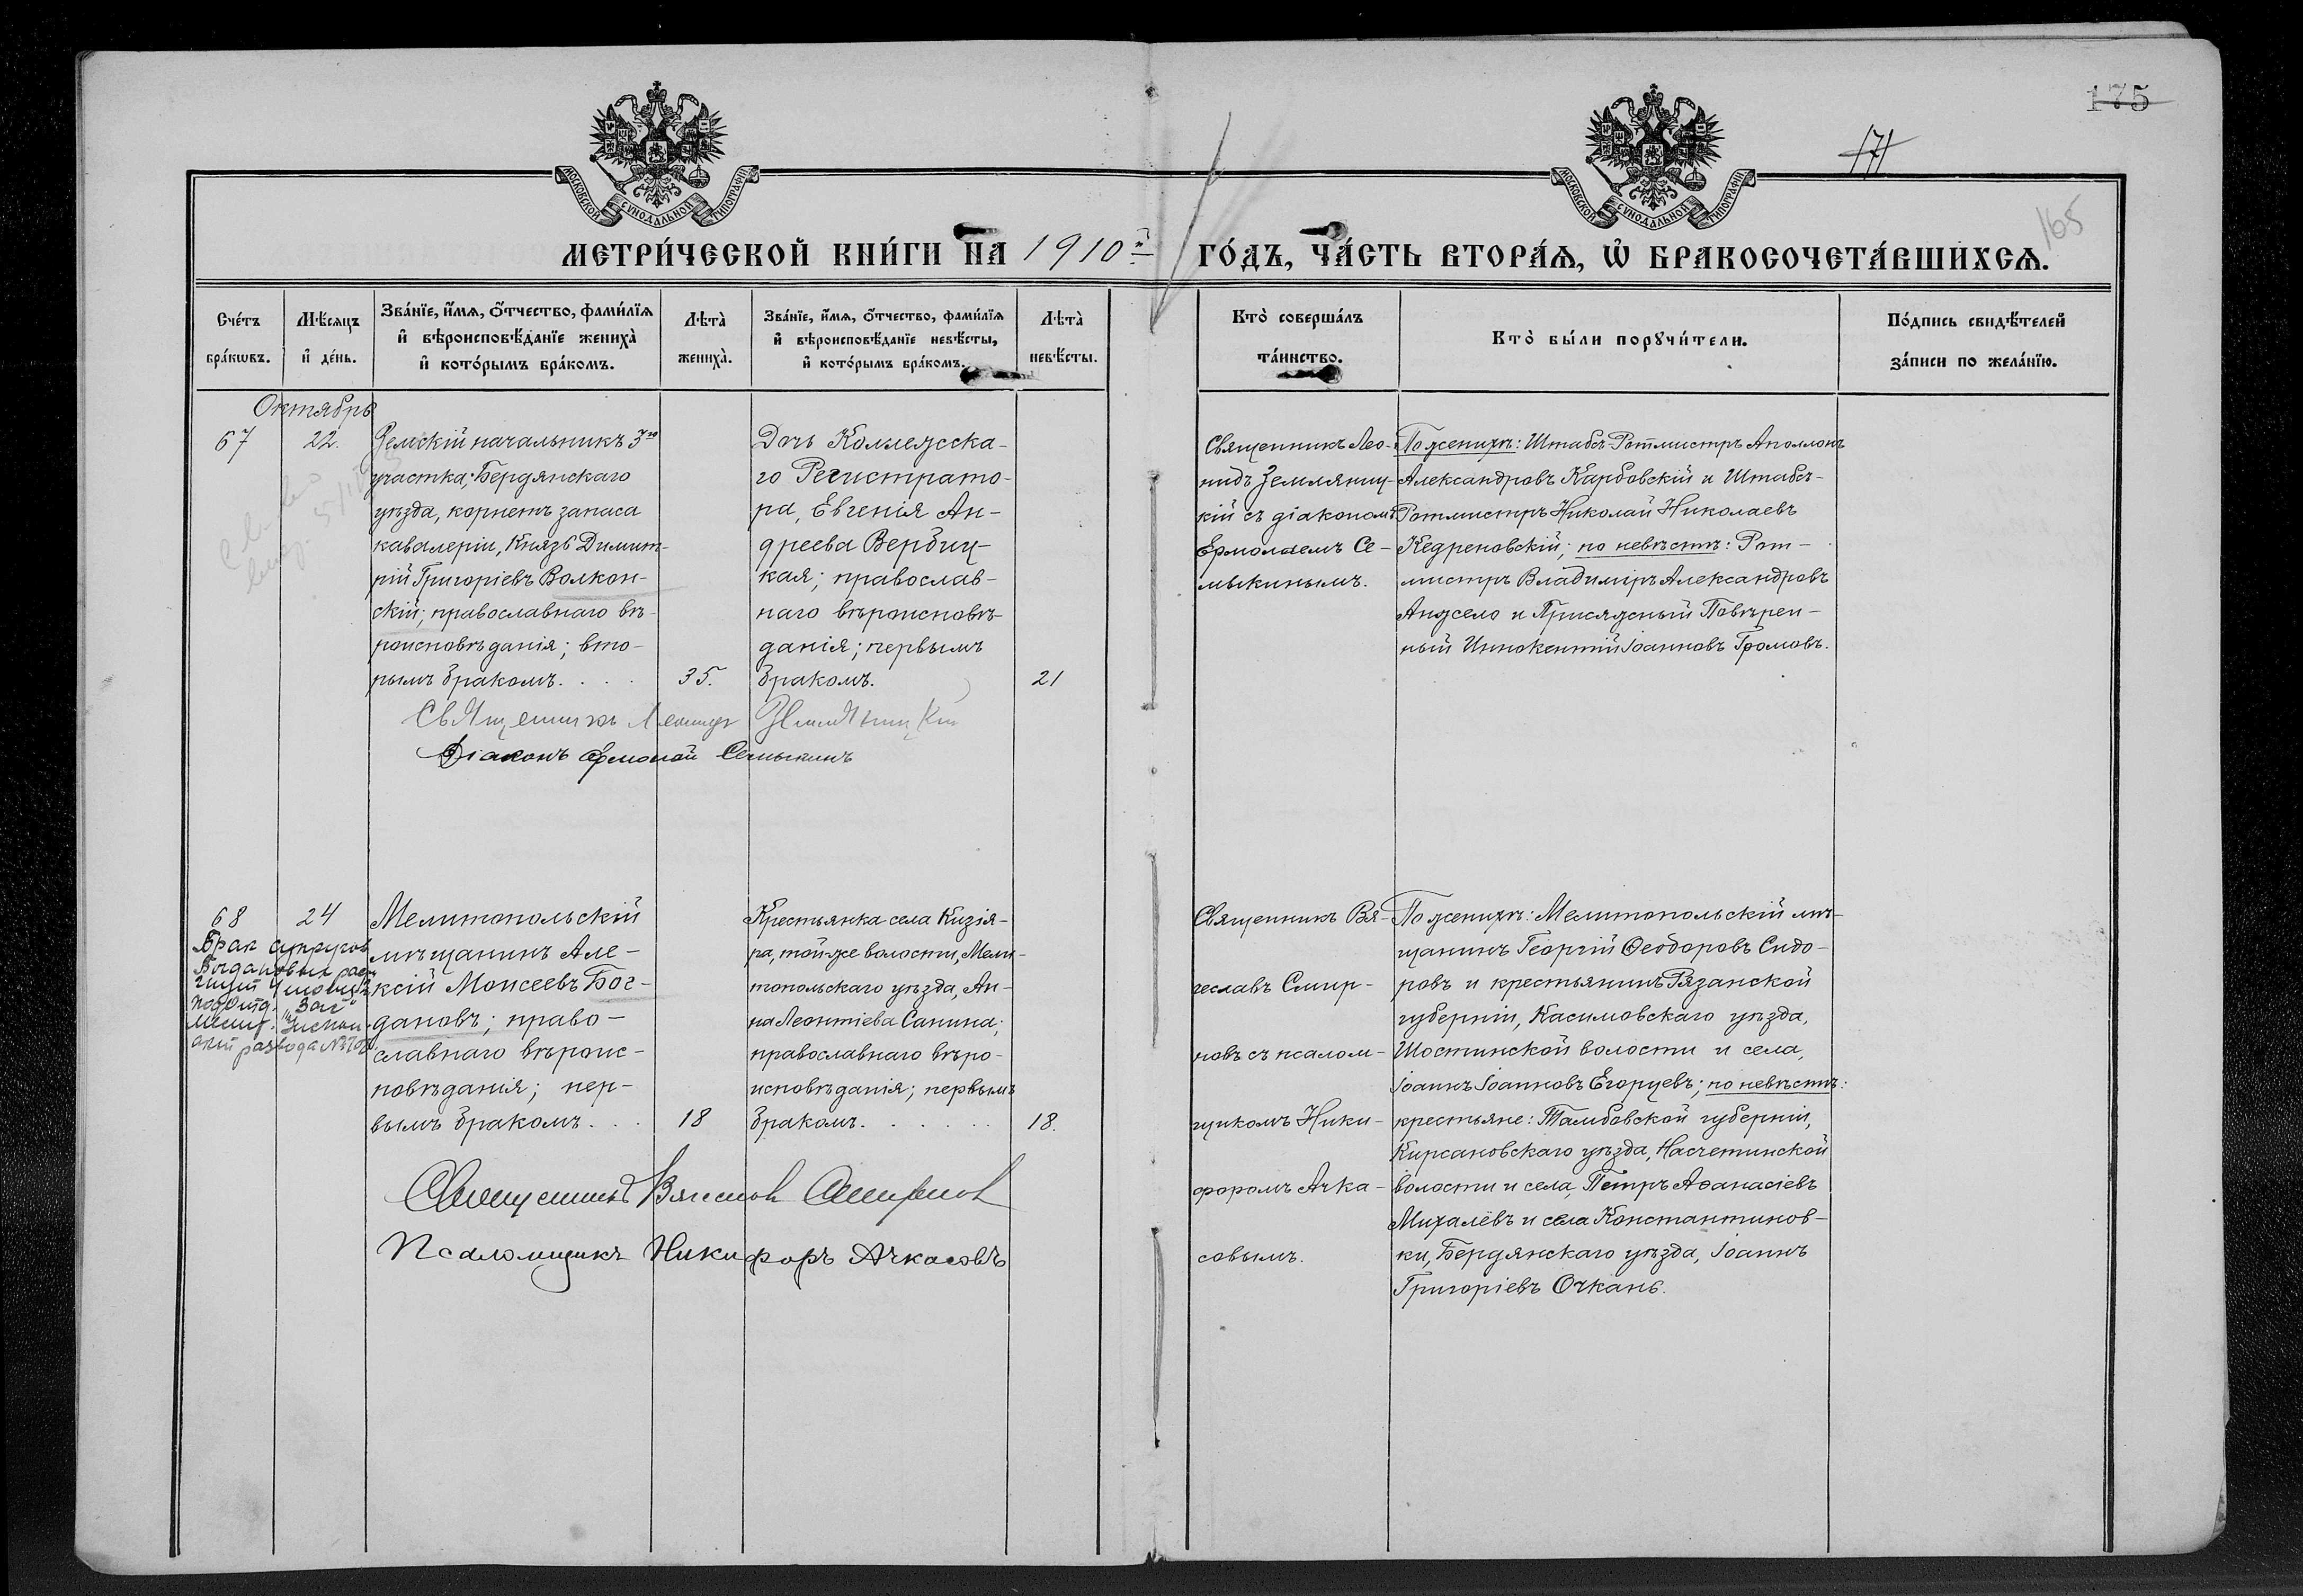 175
171
165
МОСКОВСКОЙ СѴНОДАЛЬНОЙ ТИПОГРАФІИ
МОСКОВСКОЙ СѴНОДАЛЬНОЙ ТИПОГРАФІИ
МЕТРИ́ЧЕСКОЙ КНИ́ГИ НА 1910й ГО́ДЪ, ЧА́СТЬ ВТОРА́Ѧ, Ѽ БРАКОСОЧЕТА́ВШИХСѦ.
Сче́тъ бра́кѡвъ.
Мѣ́сяцъ и҆ де́нь.
Зва́нїе, и҆́мѧ, ѻ҆́тчество, фами́лїѧ
и҆ вѣроисповѣ́данїе жениха̀
и҆ кото́рымъ бра́комъ.
Лѣта̀ жениха̀.
Зва́нїе, и҆́мѧ, ѻ҆́тчество, фами́лїѧ
и҆ вѣроисповѣ́данїе невѣ́сты,
и҆ кото́рымъ бра́комъ.
Лѣта̀ невѣ́сты.
Кто̀ соверша́лъ
та́инство.
Кто̀ бы́ли порꙋчи́тели.
По́дпись свидѣ́телей
за́писи по жела́нїю.
Октябрь
67
22.
Земскій начальникъ 3го
участка, Бердянскаго
уѣзда, корнетъ запаса
кавалеріи, Князь Димит-
рій Григоріевъ Волкон-
скій; православнаго вѣ-
роисповѣданія; вто-
рымъ бракомъ. . . .
35.
Дочь Коллежска-
го Регистрато-
ра, Евгенія Ан-
дреева Вербиц-
кая; православ-
наго вѣроисповѣ-
данія; первымъ
бракомъ.
21
Священникъ Лео-
нидъ Земляниц-
кій съ діакономъ
Ермолаемъ Се-
мыкинымъ.
По женихѣ: Штабсъ-Ротмистръ Аполлонъ
Александровъ Карбовскій и Штабсъ-
Ротмистръ Николай Николаевъ
Кедреновскій; по невѣстѣ: Рот-
мистръ Владиміръ Александровъ
Анджело и Присяжный Повѣрен-
ный Иннокентій Іоанновъ Громовъ.
Священникъ Леонидъ Земляницкій
Діаконъ Ермолай Семыкинъ
68
24
Брак супругов
Богдановых рас-
Загс
акт развода №
Мелитопольскій
мѣщанинъ Але-
ксій Моисеевъ Бог-
дановъ; право-
славнаго вѣроис-
повѣданія; пер-
вымъ бракомъ . . .
18
Крестьянка села Кизія-
ра, той-же волости, Мели-
топольскаго уѣзда, Ан-
на Леонтіева Санина;
православнаго вѣро-
исповѣданія; первымъ
бракомъ. . . . . .
18.
Священникъ Вя-
чеславъ Смир-
новъ съ псалом-
щикомъ Ники-
форомъ Ачка-
совымъ.
По женихѣ: Мелитопольскій мѣ-
щанинъ Георгій Ѳеодоровъ Сидо-
ровъ и крестьянинъ Рязанской
губерніи, Касимовскаго уѣзда,
Шостинской волости и села,
Іоаннъ Іоанновъ Егорцевъ; по невѣстѣ:
крестьяне: Тамбовской губерніи,
Кирсановскаго уѣзда, Насчетинской
волости и села, Петръ Аѳанасіевъ
Михалёвъ и села Константинов-
ки, Бердянскаго уѣзда, Іоаннъ
Григоріевъ Очкань.
Священникъ Вячеслав Смирнов
Псаломщикъ Никифоръ Ачкасовъ